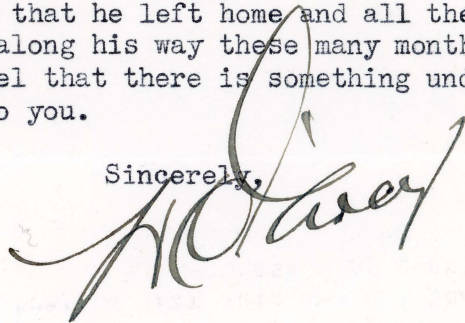 that he left home and all the
along his way these many month
el that there is something und
o you.
Sincerely,